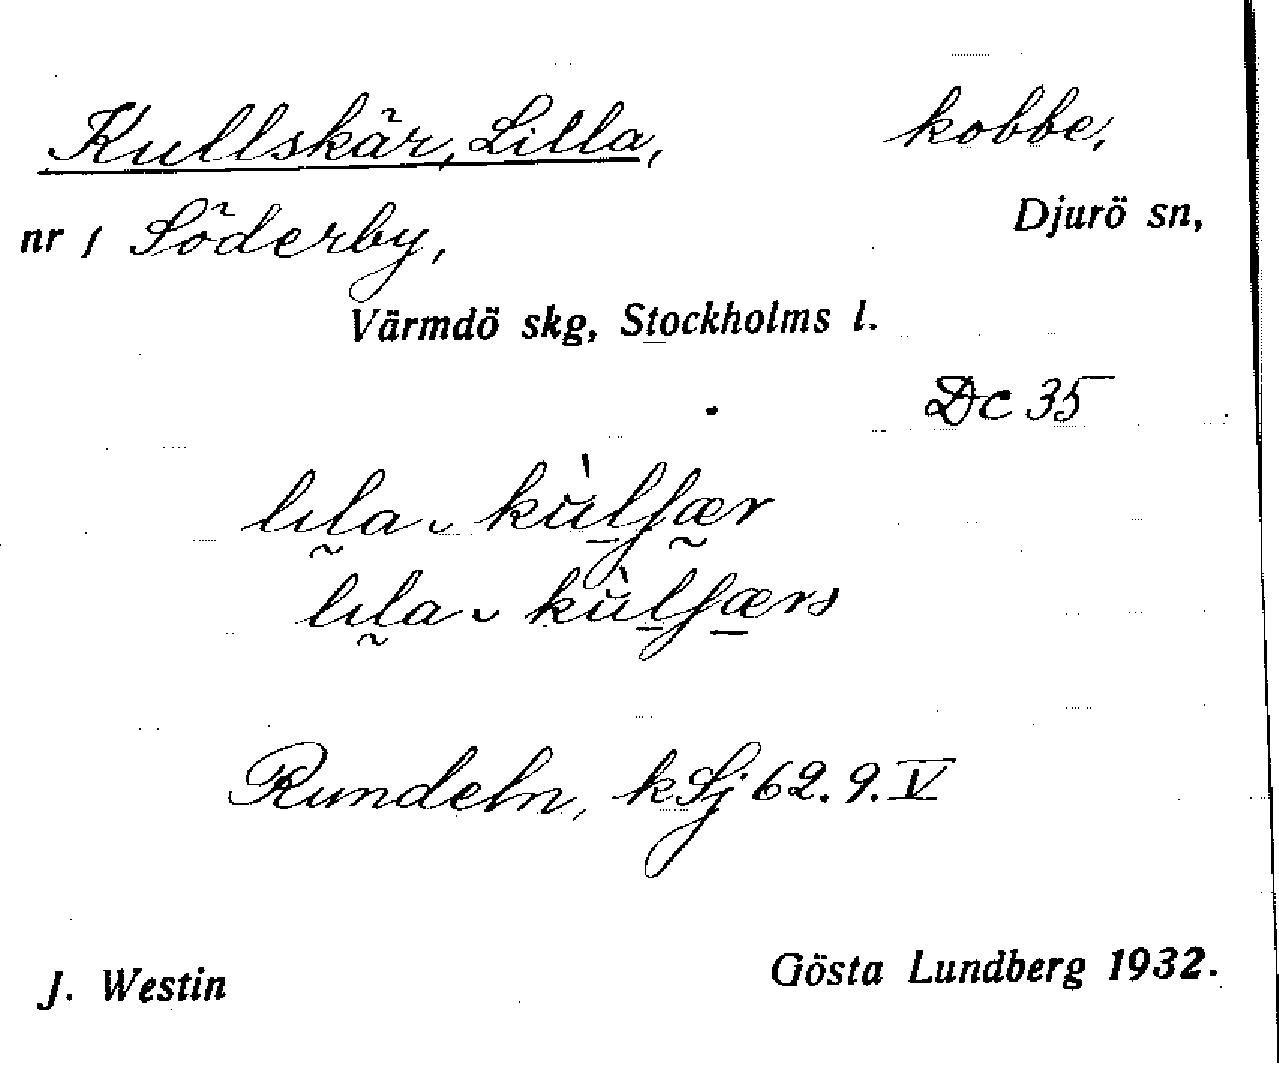 Kullskär, Lilla, kobbe,
nr 1 Söderby, Djurö sn,
Värmdö skg, Stockholms l.
Dc 35
Rundeln, kSj 62. 9. V
J. Westin Gösta Lundberg 1932.